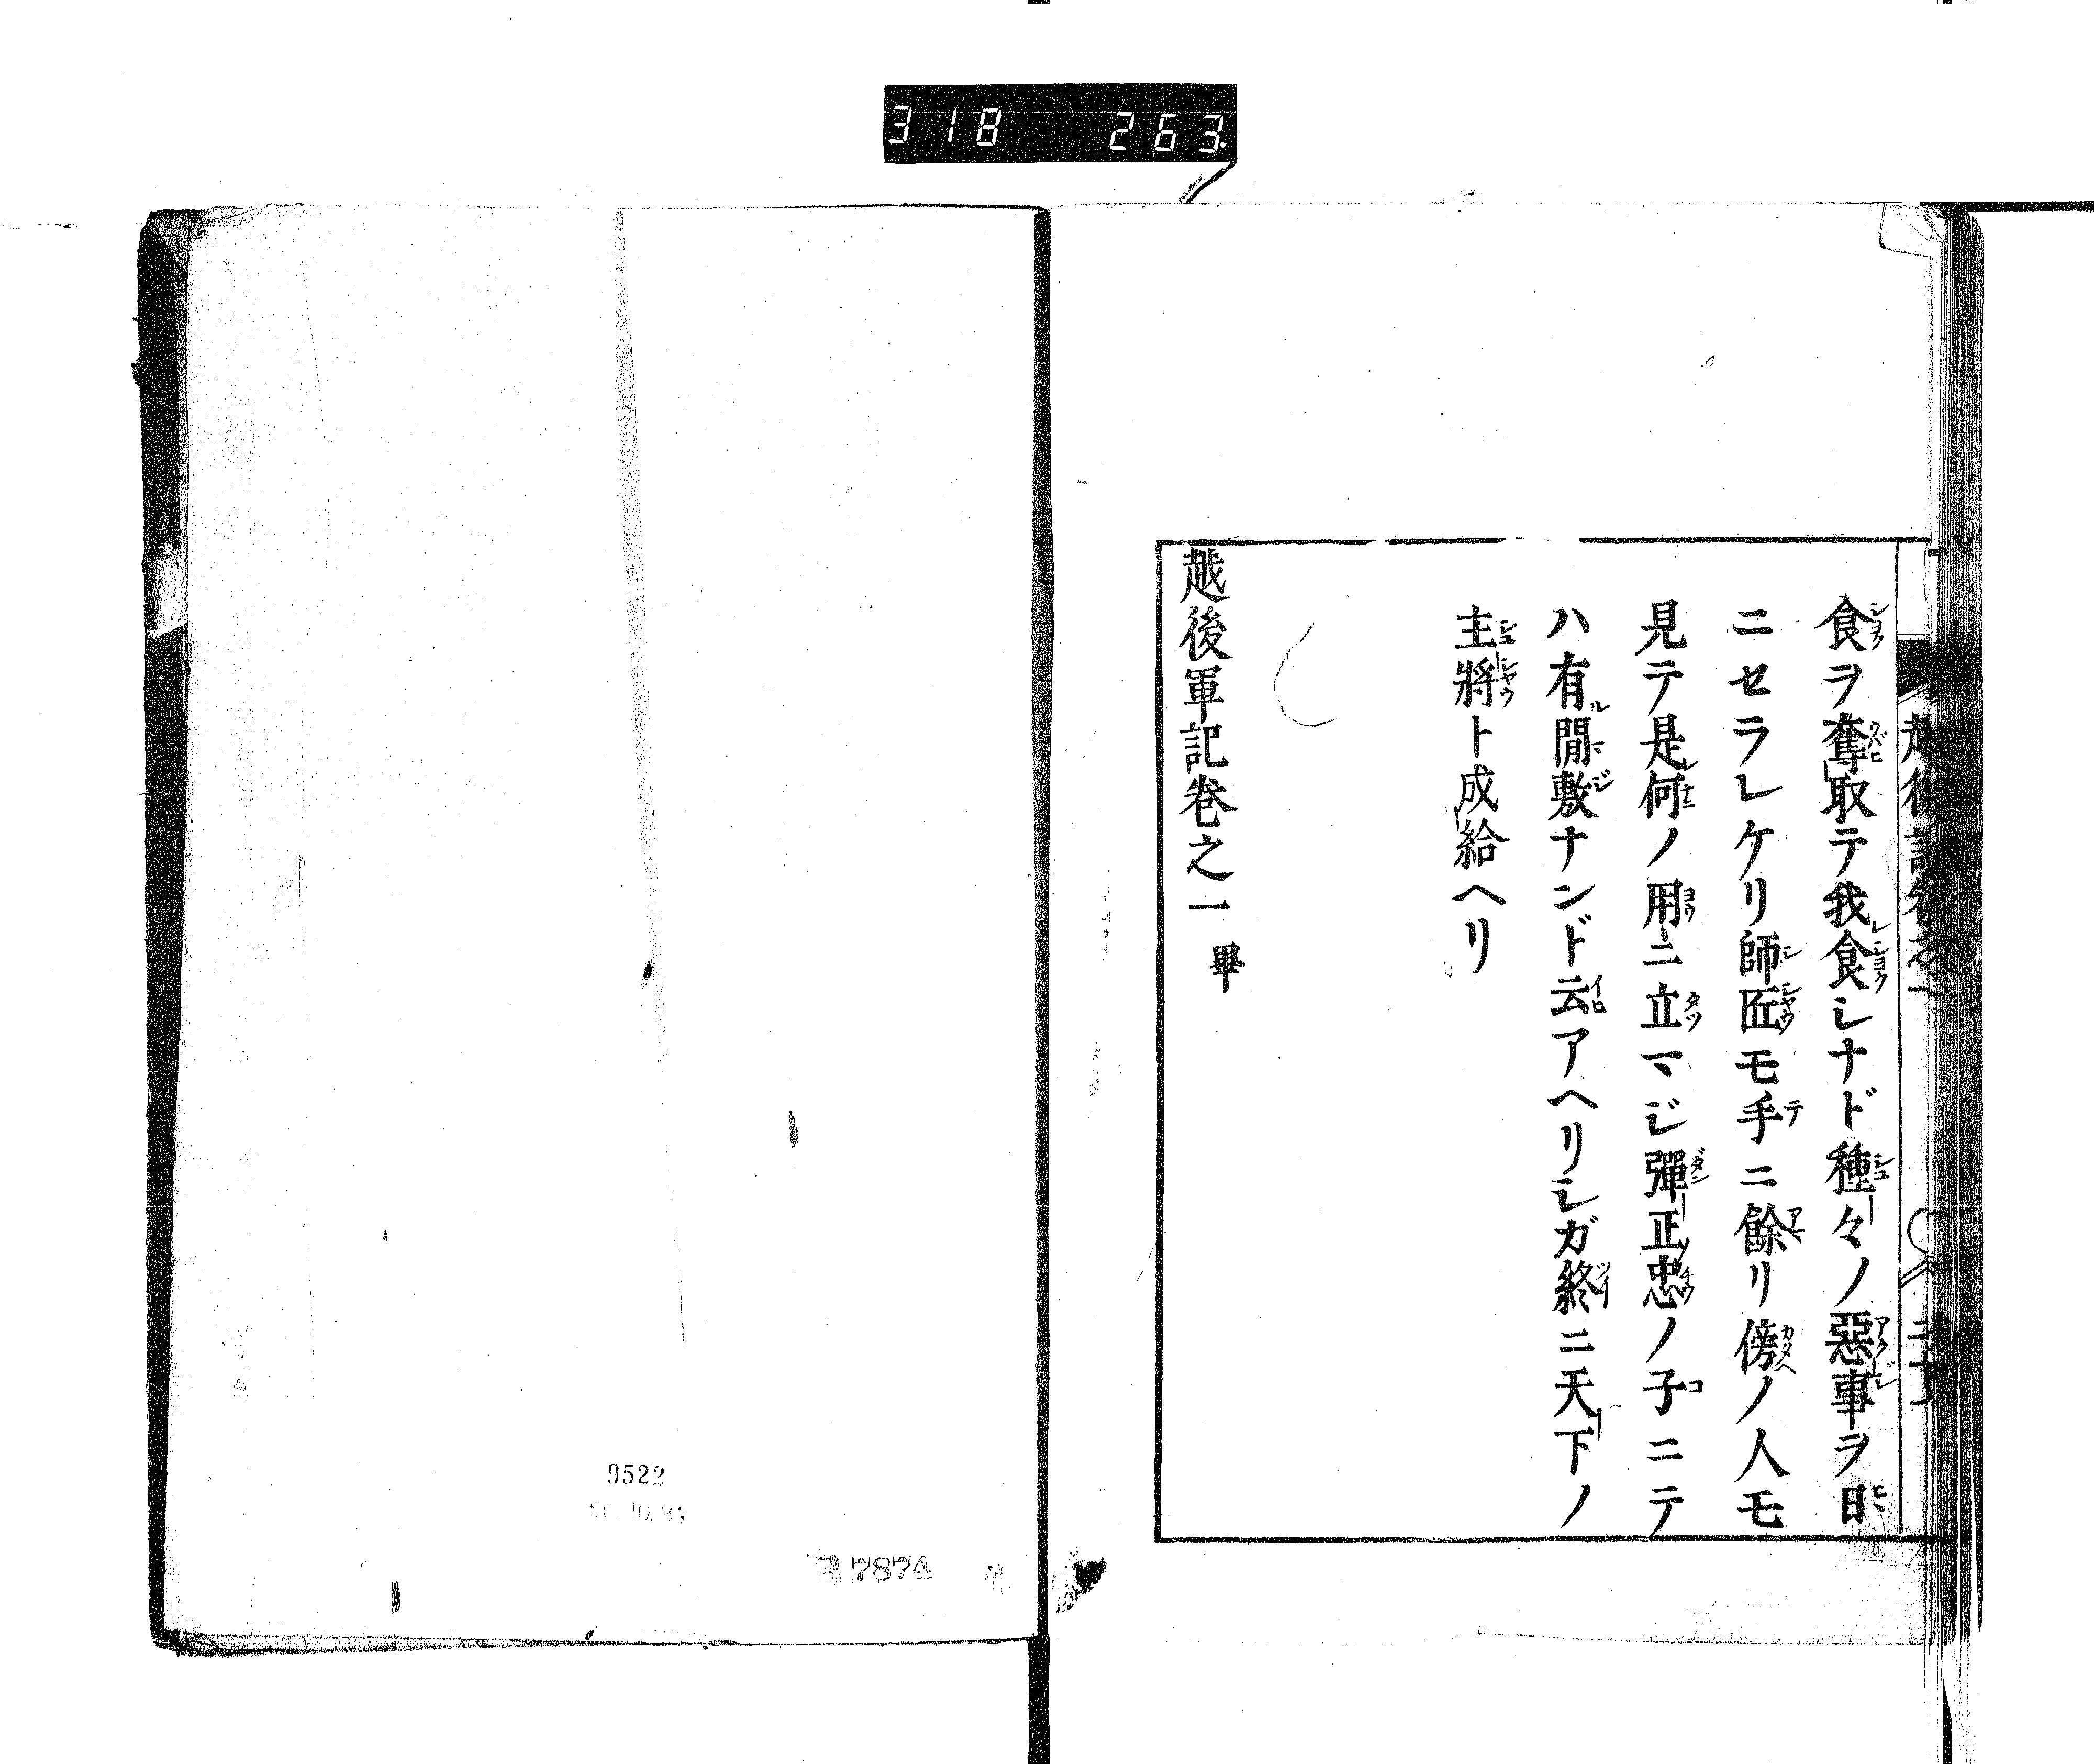 318 263
食ヲ奪取テ我食シナド種々ノ惡事ヲ日
ニセラレケリ師匠モ手ニ餘リ傍ノ人モ
見テ是何ノ用ニ立マジ彈正忠ノ子ニテ
ハ有間敷ナンド云アヘリシガ終ニ天下ノ
主將ト成給ヘリ
越後軍記卷之一 畢
9522
37874